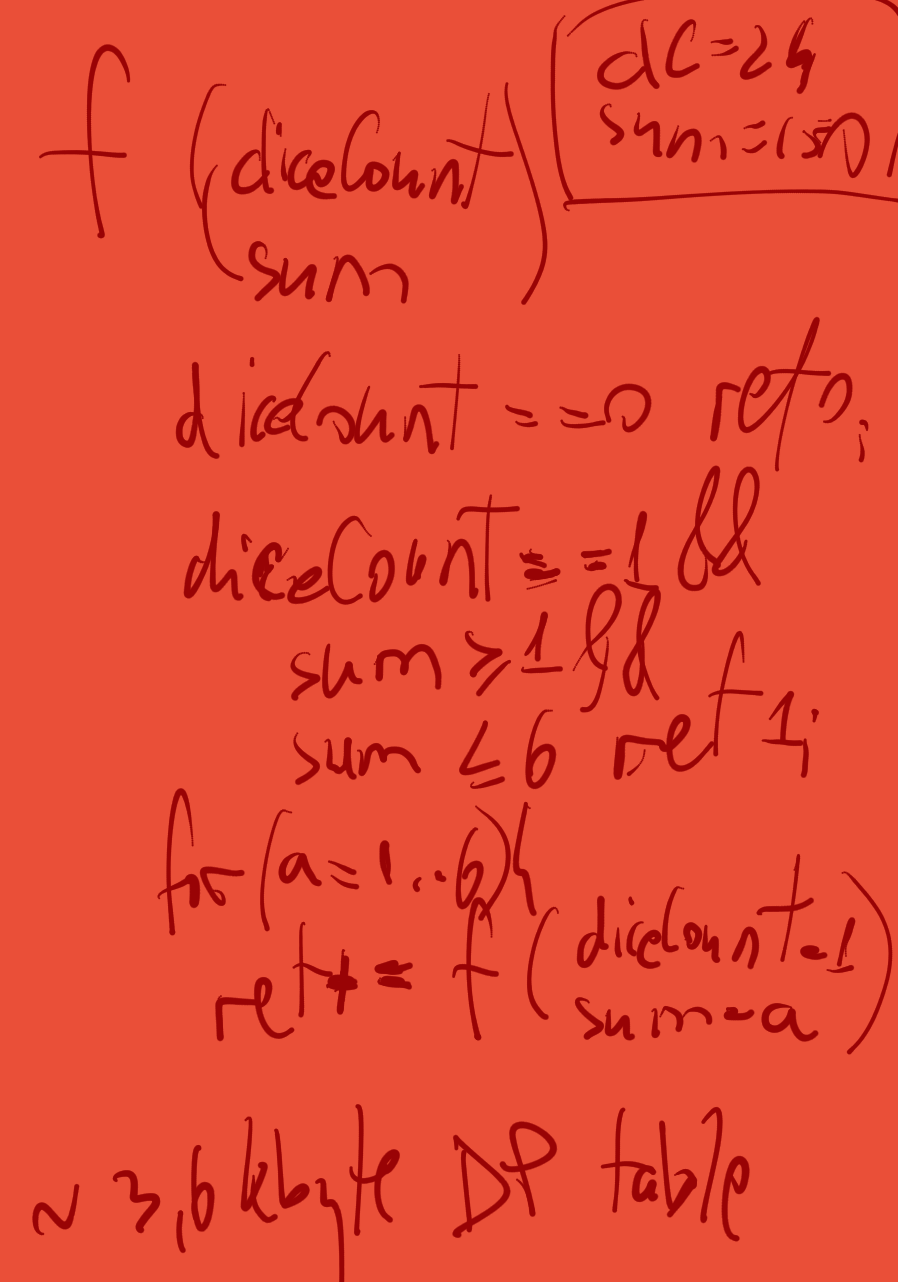 f (diceCount
sum)
dC=24
sum=150
diceCount ==0 ret 0;
diceCount ==1 &&
sum ≥1 &&
sum ≤6 ret 1;
for (a=1..6){
ret+= f(diceCount-1
sum-a)
~ 3,6 kbyte DP table